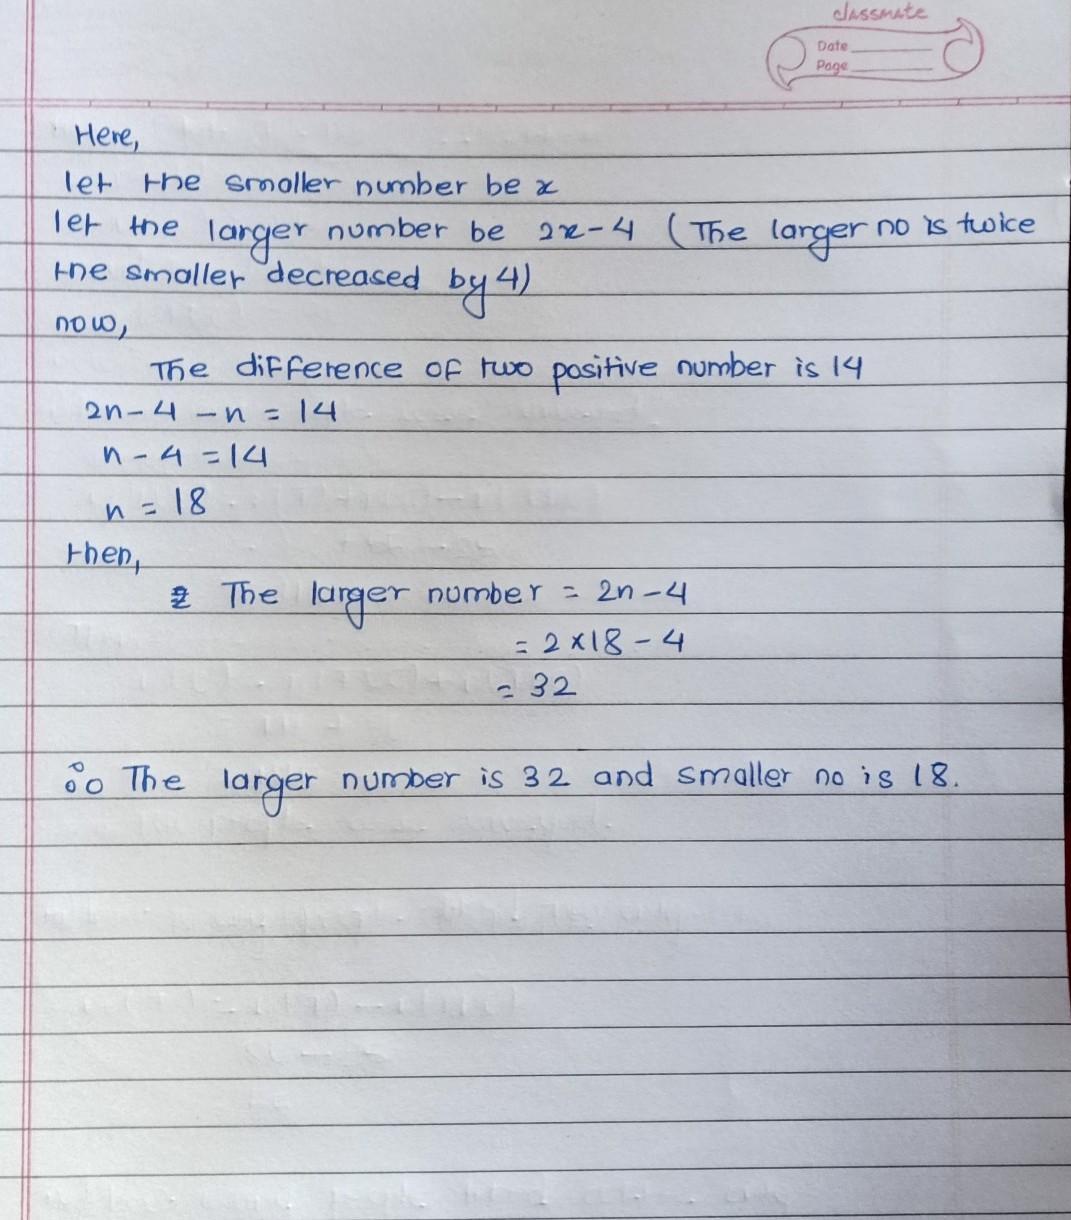 classmate
Date
Page
Here,
let the smaller number be x
let the larger number be 2x-4 (The larger no is twice
the smaller decreased by 4)
now,
The difference of two positive number is 14
2n-4-n = 14
n-4=14
n = 18
then,
The larger number = 2n-4
= 2×18-4
= 32
∴ The larger number is 32 and smaller no is 18.